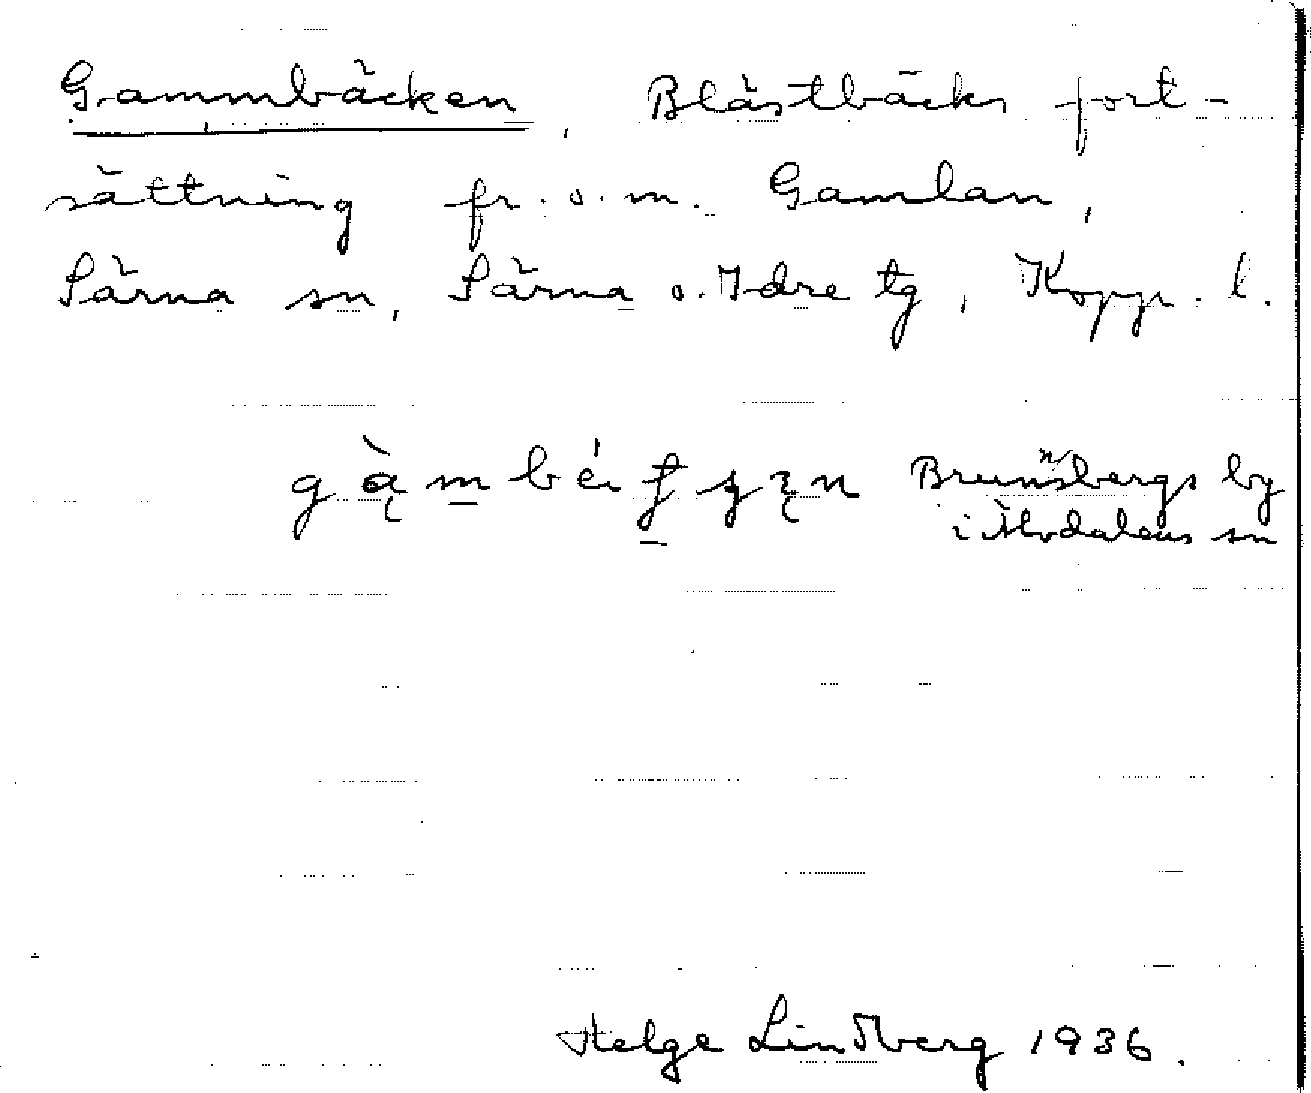 Gammbäcken, Blästbäcks fort-
sättning fr.o.m. Gamlan,
Särna sn, Särna o. Idre tg, Kopp. l.
Brunnsbergs by
i Älvdalens sn
Helge Lindberg 1936.